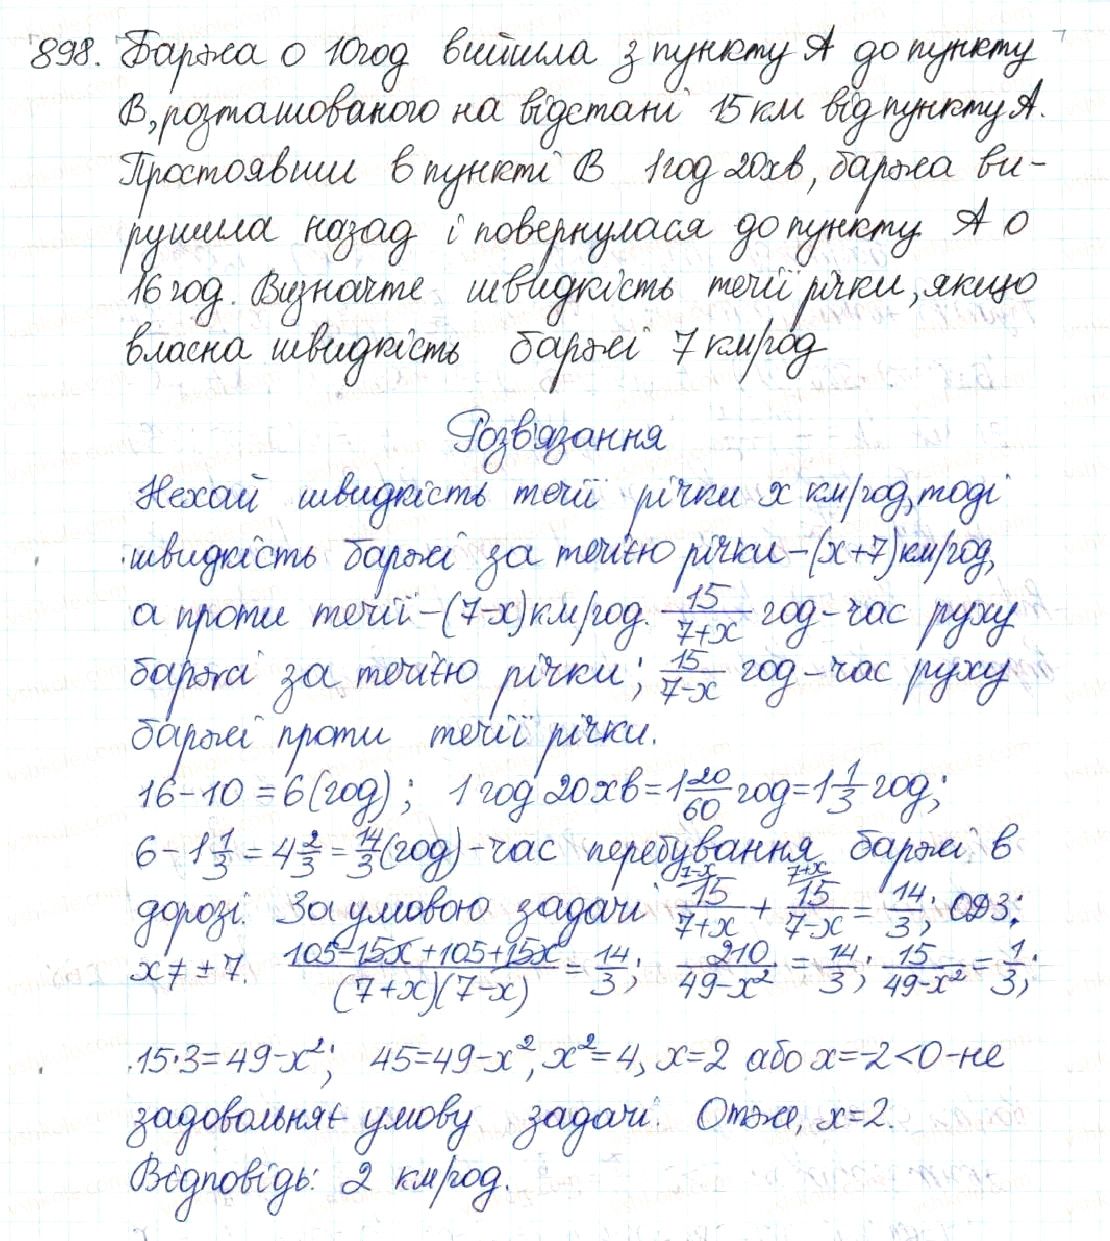 898. Баржа о 10год вийшла з пункту А до пункту
В, розташованого на відстані 15 км від пункту А.
Простоявши в пункті В 1год 20хв, баржа ви-
рушила назад і повернулася до пункту А о
16 год. Визначте швидкість течії річки, якщо
власна швидкість баржі 7 км/год
Розв'язання
Нехай швидкість течії річки x км/год, тоді
швидкість баржі за течією річки – (x+7) км/год,
а проти течії – (7-x) км/год. 15/(7+x) год – час руху
баржі за течією річки; 15/(7-x) год – час руху
баржі проти течії річки.
16-10=6(год); 1 год 20хв=1 20/60 год=1 1/3 год;
6-1 1/3=4 2/3=14/3(год) – час перебування баржі в
дорозі. За умовою задачі 7-x 15/(7+x) + 7+x 15/(7-x) = 14/3; ОДЗ:
x≠±7. (105-15x+105+15x)/((7+x)(7-x)) = 14/3; 210/(49-x²) = 14/3; 15/(49-x²) = 1/3;
15·3=49-x²; 45=49-x², x²=4, x=2 або x=-2<0 - не
задовольняє умову задачі. Отже, x=2.
Відповідь: 2 км/год.